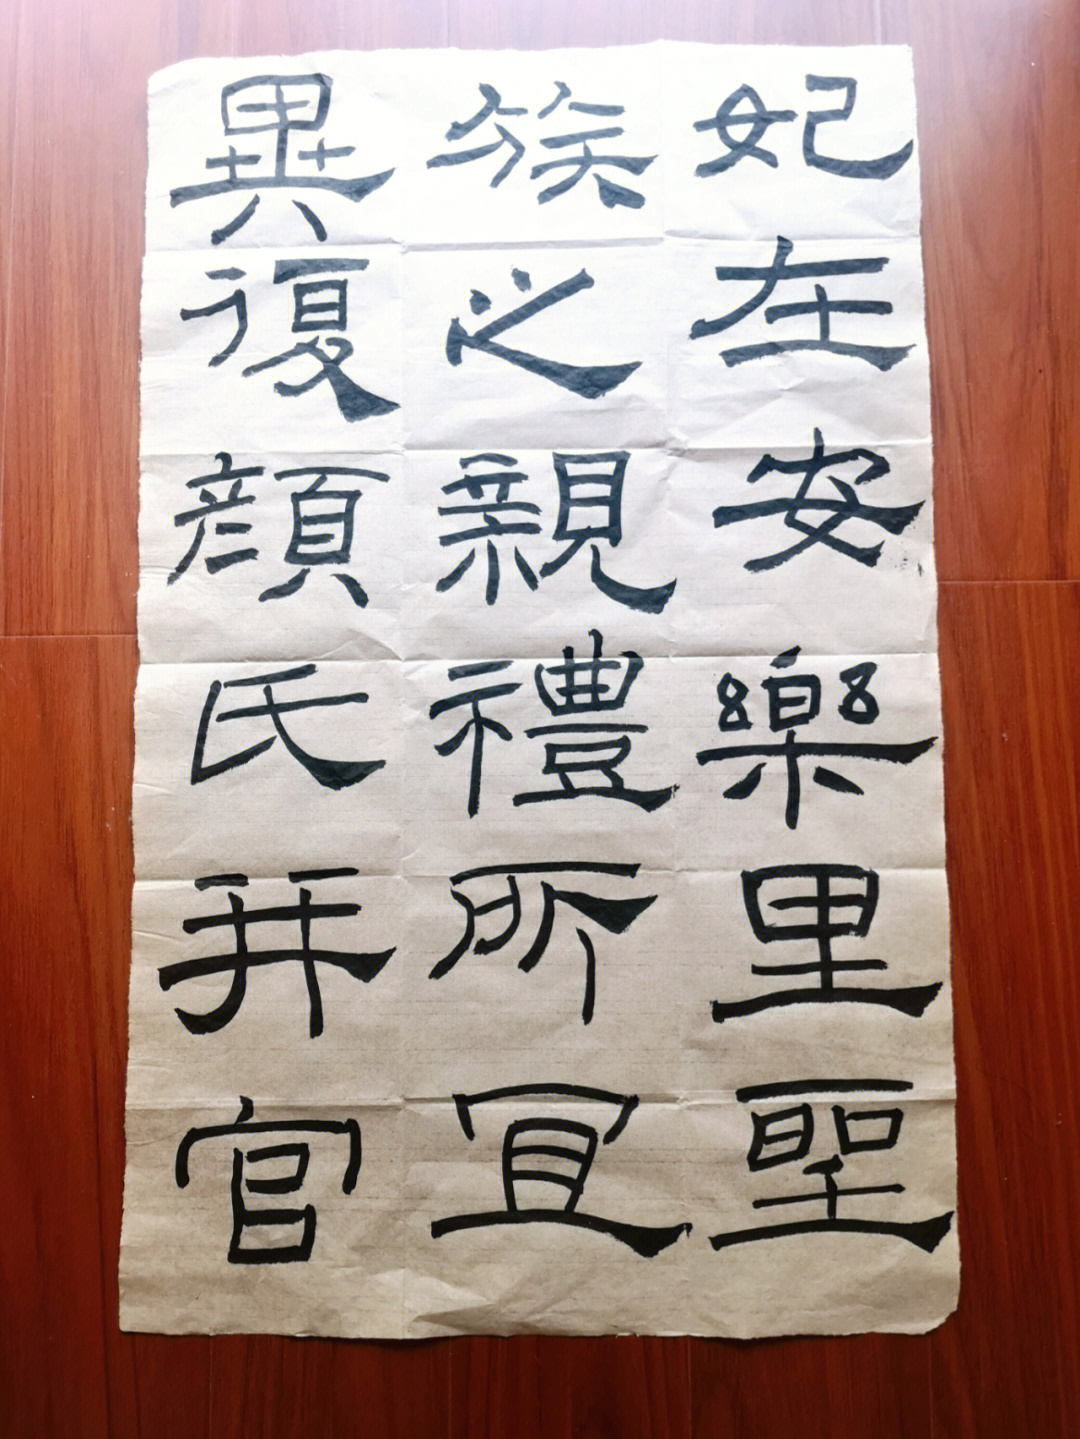 妃在安樂里聖
族之親禮所宜
異復顏氏并官